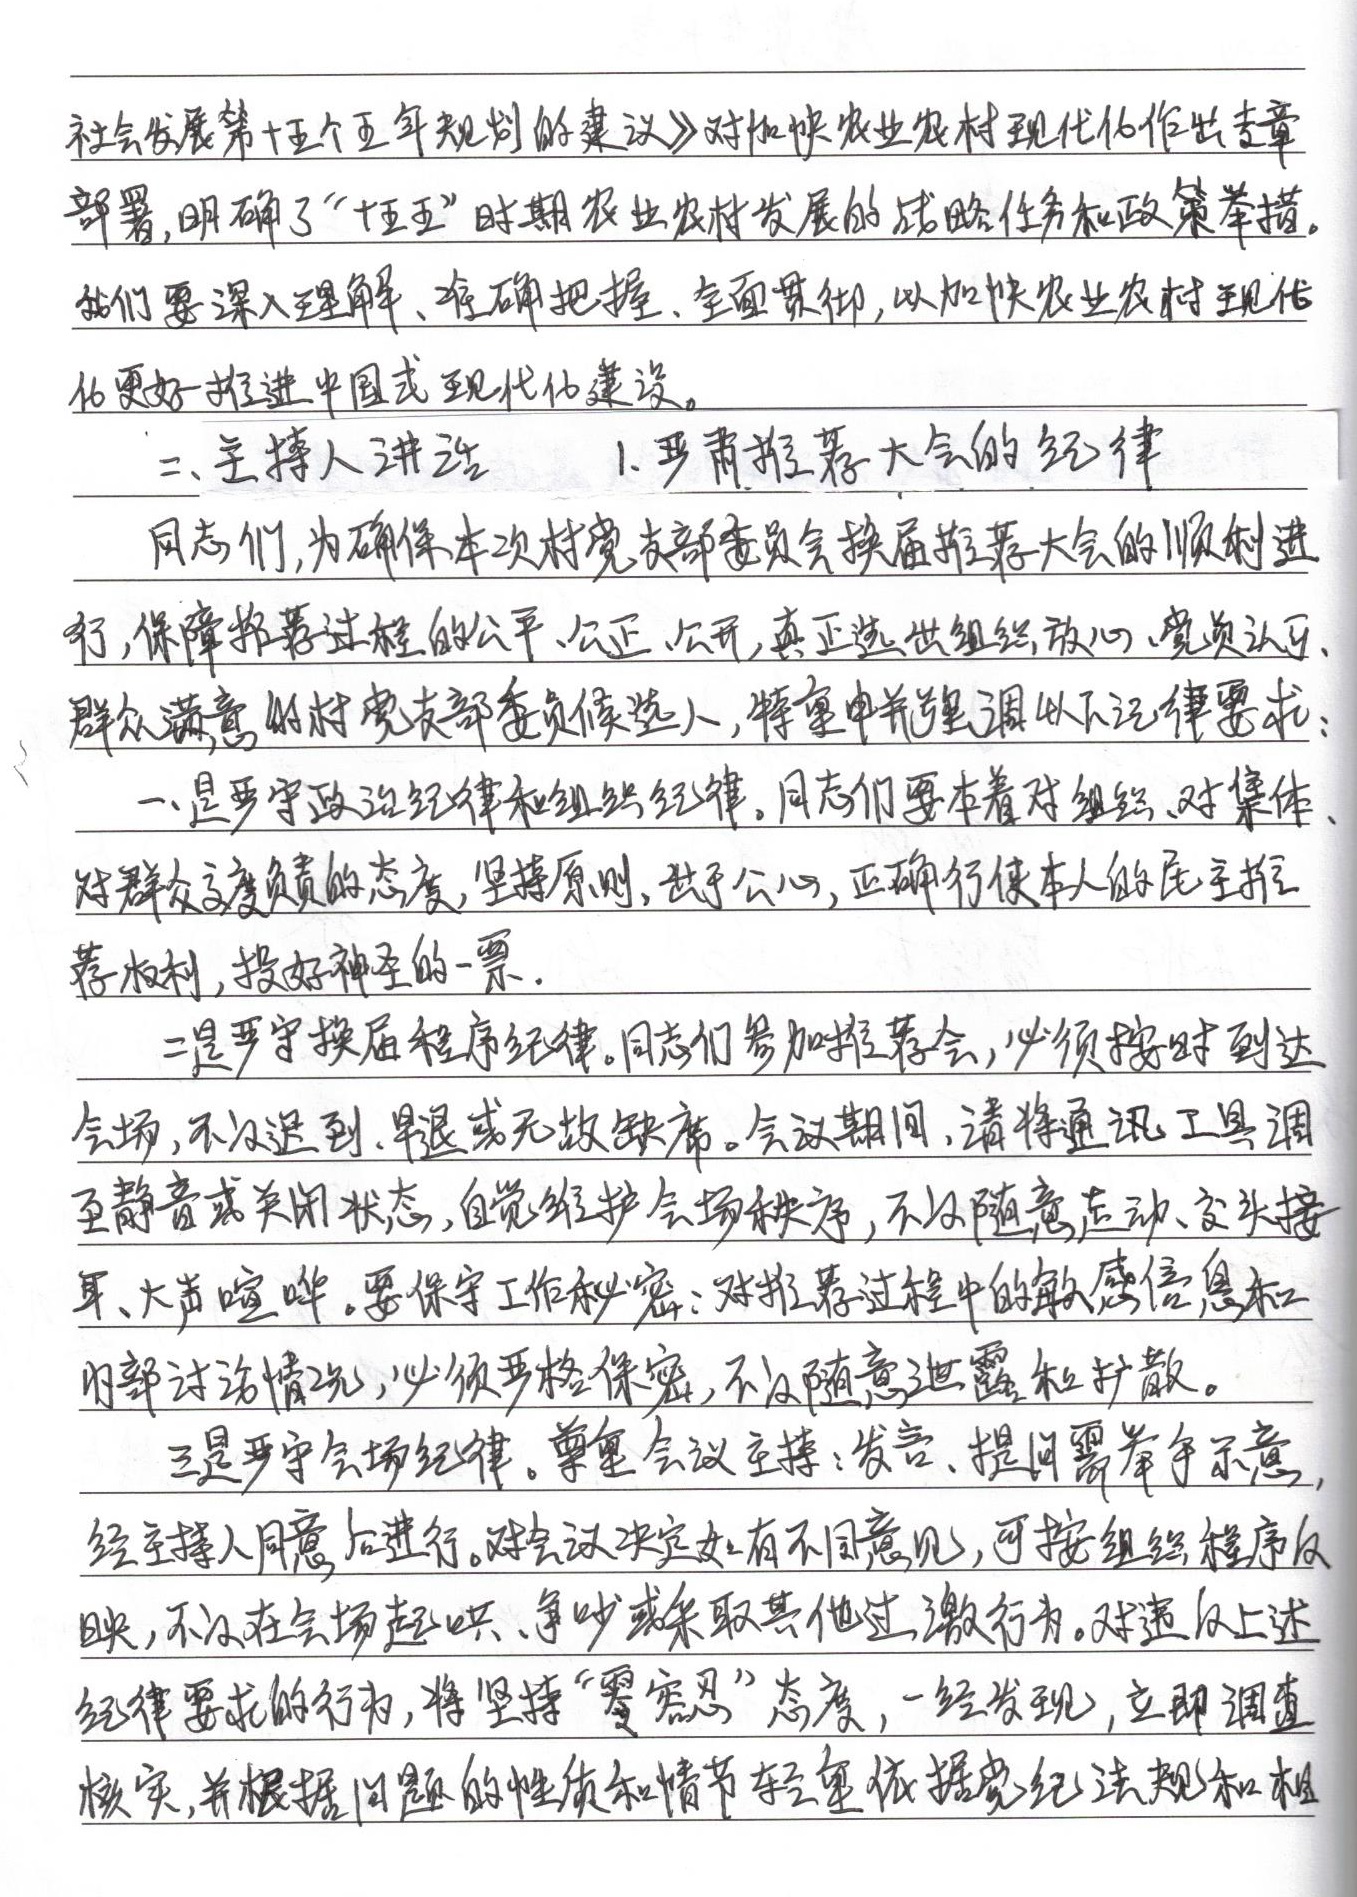 社会发展第十五个五年规划的建议》对加快农业农村现代化作出专章
部署,明确了“十五五”时期农业农村发展的战略任务和政策举措。
我们要深入理解、准确把握、全面贯彻,以加快农业农村现代
化更好推进中国式现代化建设。
二、主持人讲话 1.严肃推荐大会的纪律
同志们,为确保本次村党支部委员会换届推荐大会的顺利进
行,保障推荐过程的公平、公正、公开,真正选出组织放心、党员认可、
群众满意的村党支部委员候选人,特重申并强调以下纪律要求:
一、是严守政治纪律和组织纪律。同志们要本着对组织、对集体、
对群众高度负责的态度,坚持原则,出于公心,正确行使本人的民主推
荐权利,投好神圣的一票.
二是严守换届程序纪律。同志们参加推荐会,必须按时到达
会场,不议迟到、早退或无故缺席。会议期间,请将通讯工具调
至静音或关闭状态,自觉维护会场秩序,不议随意走动、交头接
耳、大声喧哗。要保守工作秘密:对推荐过程中的敏感信息和
内部讨论情况,必须严格保密,不议随意泄露和扩散。
三是严守会场纪律。尊重会议主持:发言、提问需举手示意,
经主持人同意后进行。对会议决定如有不同意见,可按组织程序反
映,不议在会场起哄、争吵或采取其他过激行为。对违反上述
纪律要求的行为,将坚持“零容忍”态度,一经发现,立即调查
核实,并根据问题的性质和情节轻重依据党纪法规和相